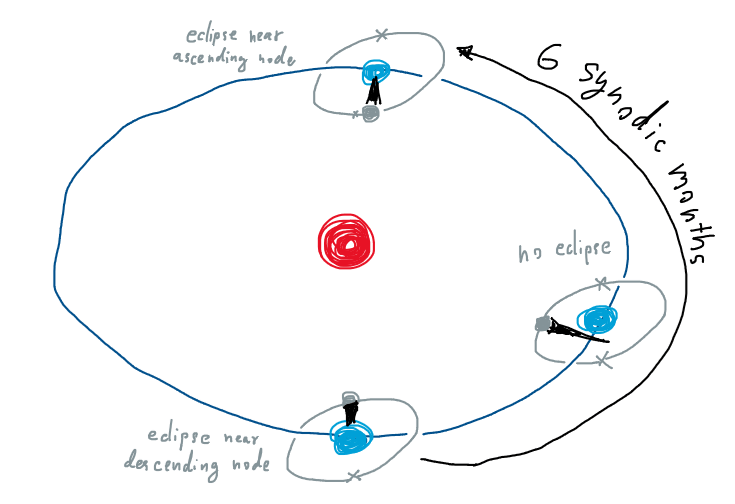 eclipse near
ascending node
6 synodic months
no eclipse
eclipse near
descending node